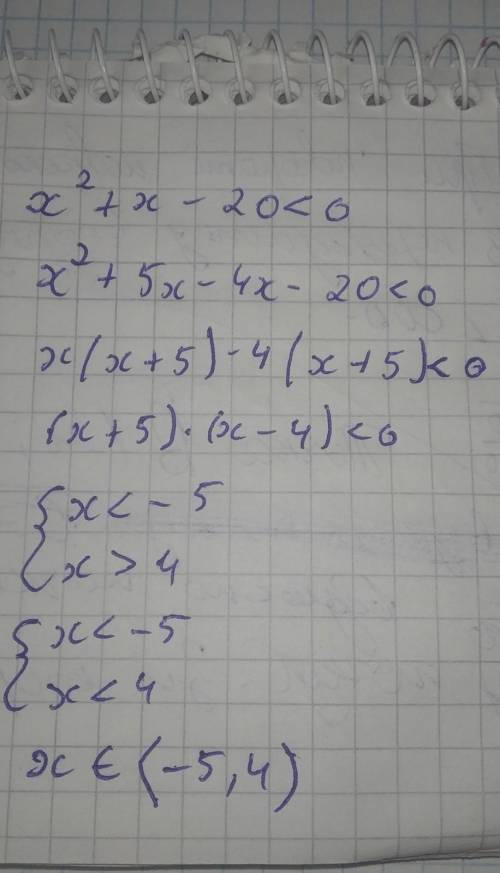 x² + x - 20 < 0
x² + 5x - 4x - 20 < 0
x(x + 5) - 4(x + 5) < 0
(x + 5) · (x - 4) < 0
{ x < - 5
x > 4
{ x < - 5
x < 4
x ∈ (-5, 4)